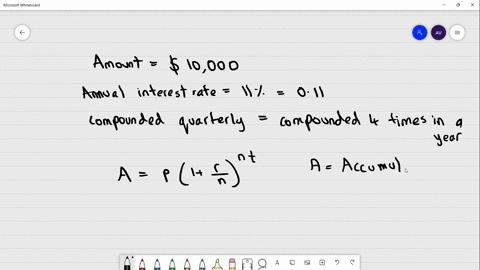 Microsoft Whiteboard
AV
Amount = $ 10,000
Annual interest rate = 11% = 0.11
compounded quarterly = compounded 4 times in a
year
A = P (1+ r/n)^nt
A = Accumul